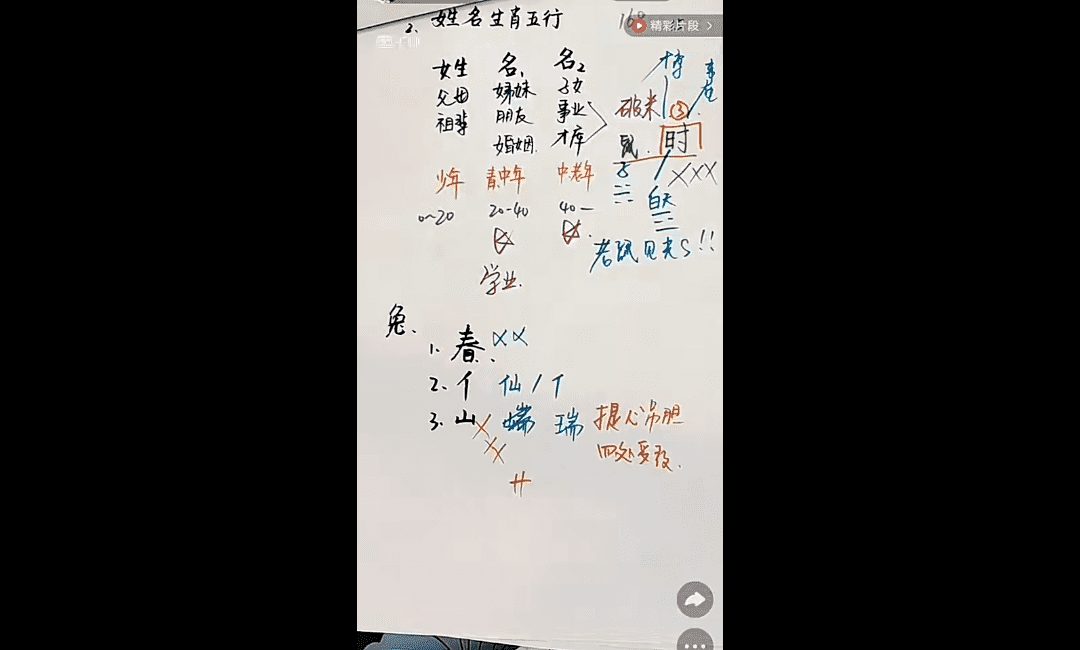 2. 姓名生肖五行
精彩片段
姓 名1 名2
父母 姊妹 子女
祖辈 朋友 事业
婚姻 才库
少年 青中年 中老年
0~20 20-40 40一
学业.
破米 ③
鼠. 时
子 XXX
白天
老鼠见光S!!
兔.
1. 春. XX
2. 亻 仙 / 亻
3. 山 瑞 提心吊胆
四处受敌.
艹